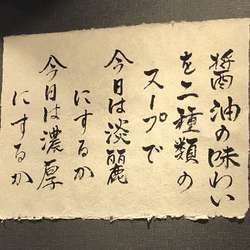 醤油の味わい
を二種類の
スープで
今日は淡麗
にするか
今日は濃厚
にするか